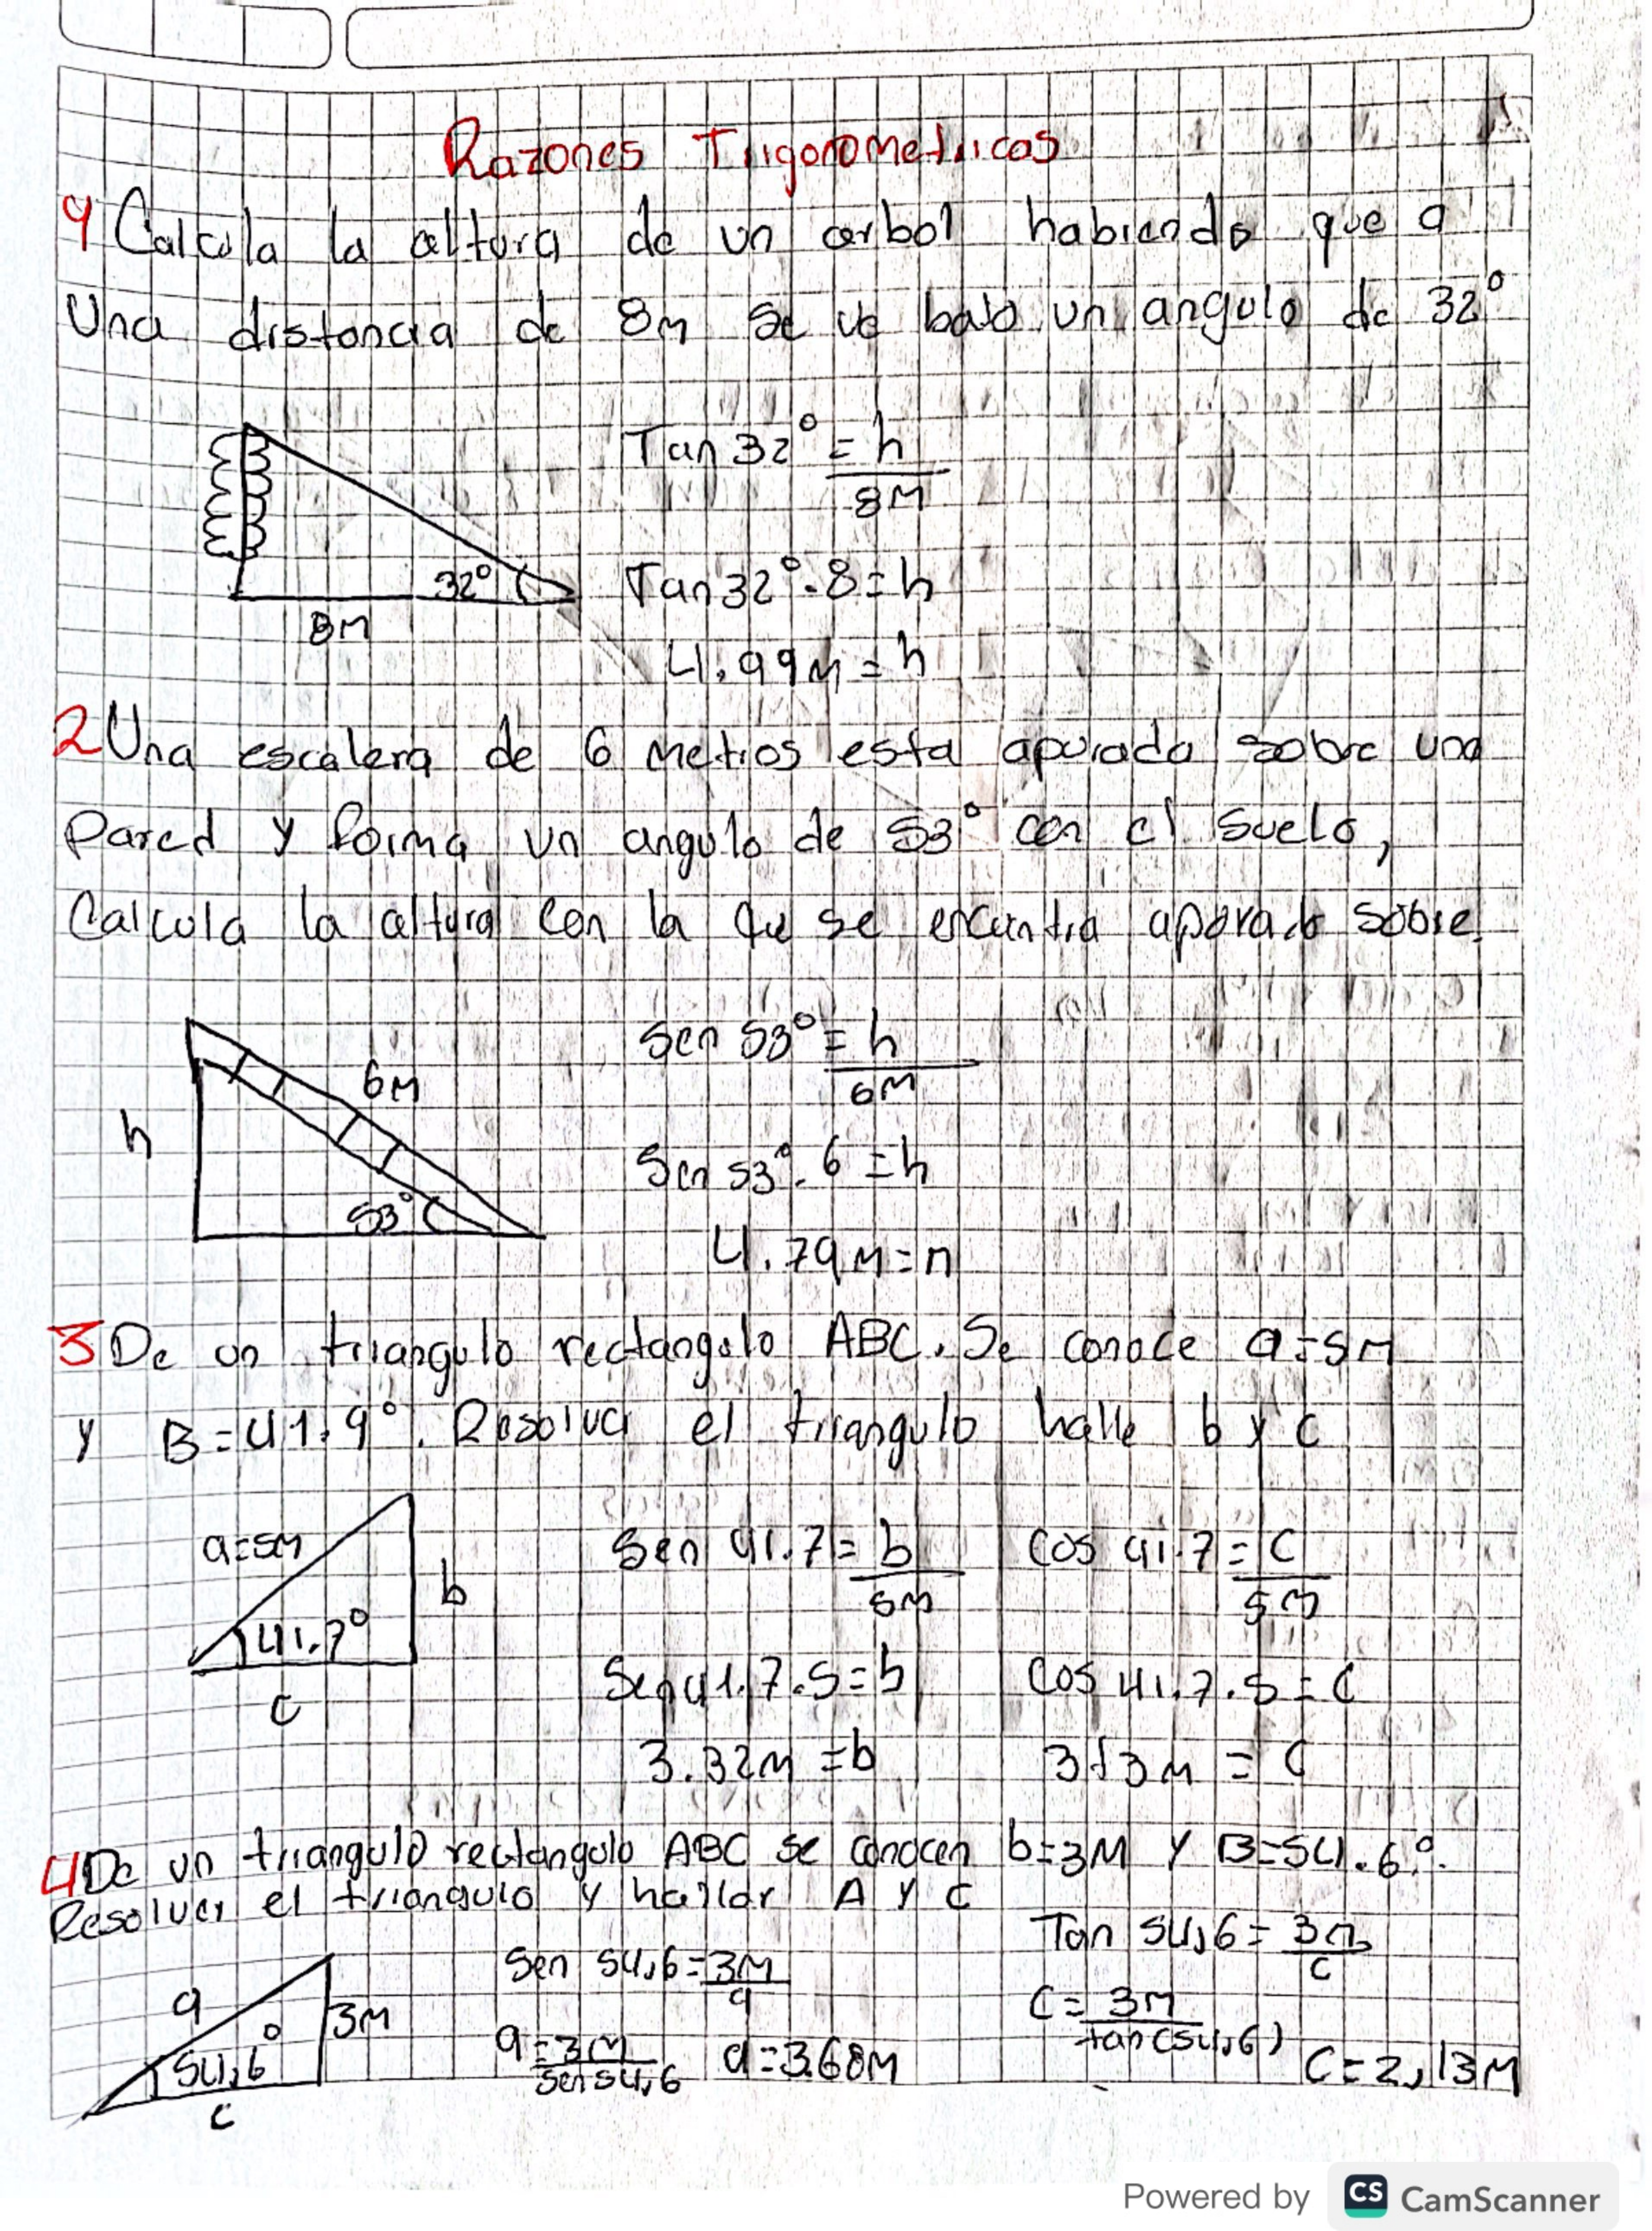 Razones Trigonometricas
1 Calcula la altura de un arbol habiendo que a
Una distancia de 8m se ve bajo un angulo de 32°
Tan 32° = h
8M
32°
8M
Tan 32° . 8 = h
4.99M = h
2 Una escalera de 6 Metros esta apoyada sobre una
Pared y forma un angulo de 53° con el suelo,
Calcula la altura con la que se encuentra apoyado sobre.
h
6M
53°
Sen 53° = h
6M
Sen 53° . 6 = h
4.79M = h
3 De un triangulo rectangulo ABC. Se conoce a=5M
y B=41.9°. Resolver el triangulo halle b y c
a=5M
b
41.7°
c
Sen 41.7 = b
5M
Cos 41.7 = c
5M
Sen 41.7 . 5 = b
Cos 41.7 . 5 = c
3.32M = b
= c
4 De un triangulo rectangulo ABC se conocen b=3M y B=54.6°.
Resolver el triangulo y hallar A y C
a
3M
54,6°
c
Sen 54,6 = 3M
a
Tan 54,6 = 3M
c
a = 3M
sen 54,6
a = 3.68M
C = 3M
tan(54,6)
C = 2,13M
Powered by CS CamScanner